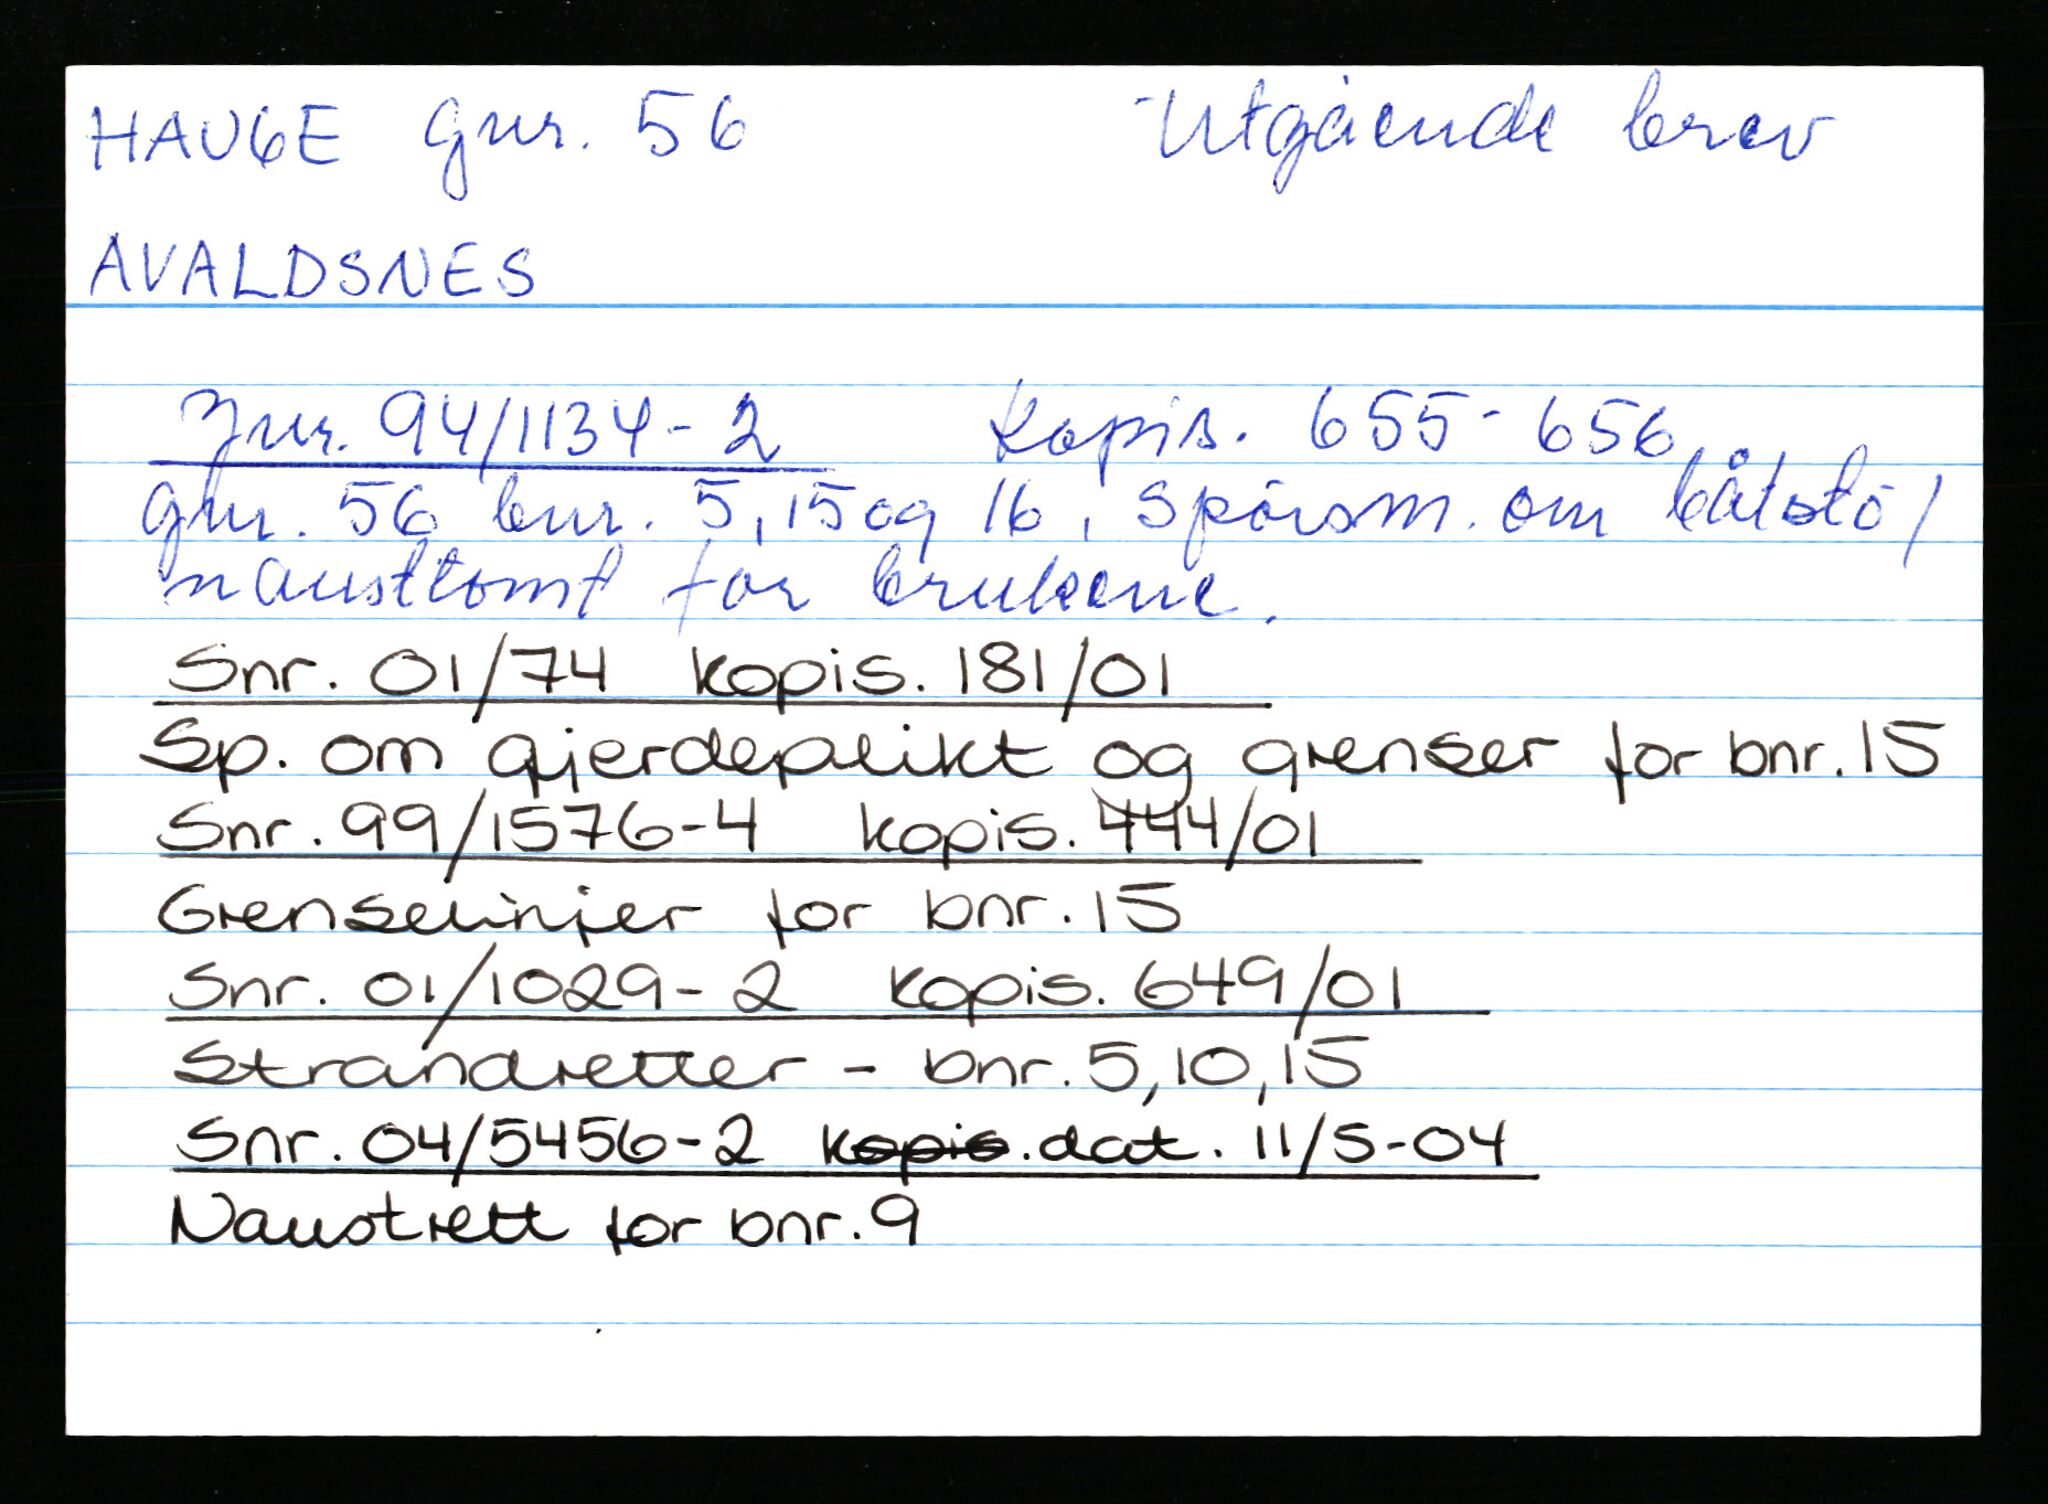 HAUGE gnr. 56 Utgående brev
AVALDSNES
Jnr. 94/1134-2 Kopis. 655-656
gnr. 56 bnr. 5, 15 og 16, Spørsm. om båtstø/
nausttomt for brukene.
Snr. 01/74 kopis. 181/01
Sp. om gjerdeplikt og grenser for bnr. 15
Snr. 99/1576-4 kopis. 444/01
Grenselinjer for bnr. 15
Snr. 01/1029-2 kopis. 649/01
Strandretter - bnr. 5, 10, 15
Snr. 04/5456-2 kopis. dat. 11/5-04
Naustrett for bnr. 9